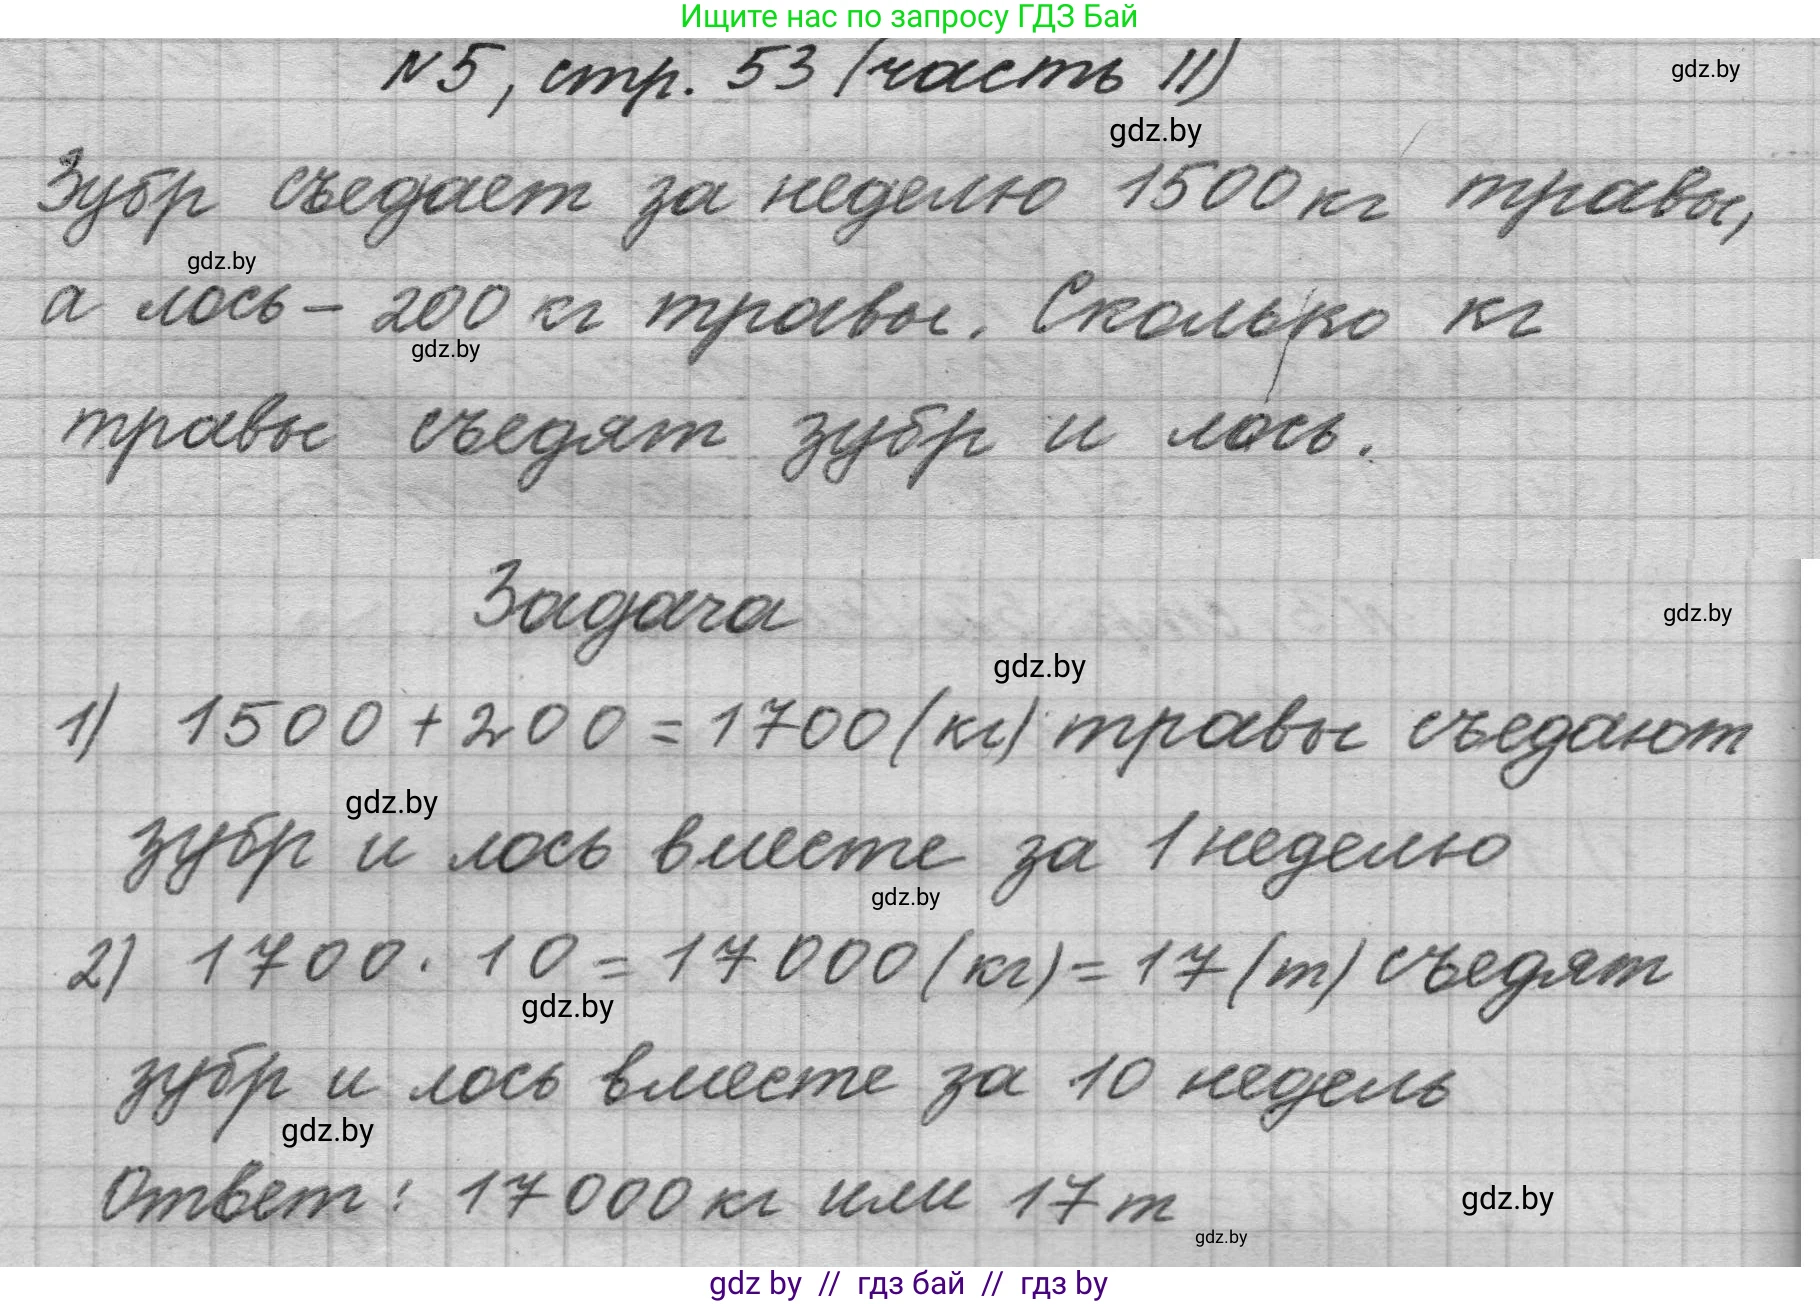 Ищите нас по запросу ГДЗ Бай
№5, стр. 53 (часть II)
gdz.by
gdz.by
Зубр съедает за неделю 1500 кг травы,
gdz.by
а лось – 200 кг травы. Сколько кг
gdz.by
травы съедят зубр и лось.
Задача
gdz.by
gdz.by
1) 1500 + 200 = 1700 (кг) травы съедают
gdz.by
зубр и лось вместе за 1 неделю
gdz.by
2) 1700 · 10 = 17000 (кг) = 17 (т) съедят
gdz.by
зубр и лось вместе за 10 недель
gdz.by
Ответ: 17000 кг или 17 т
gdz.by
gdz.by
gdz by // гдз бай // гдз by